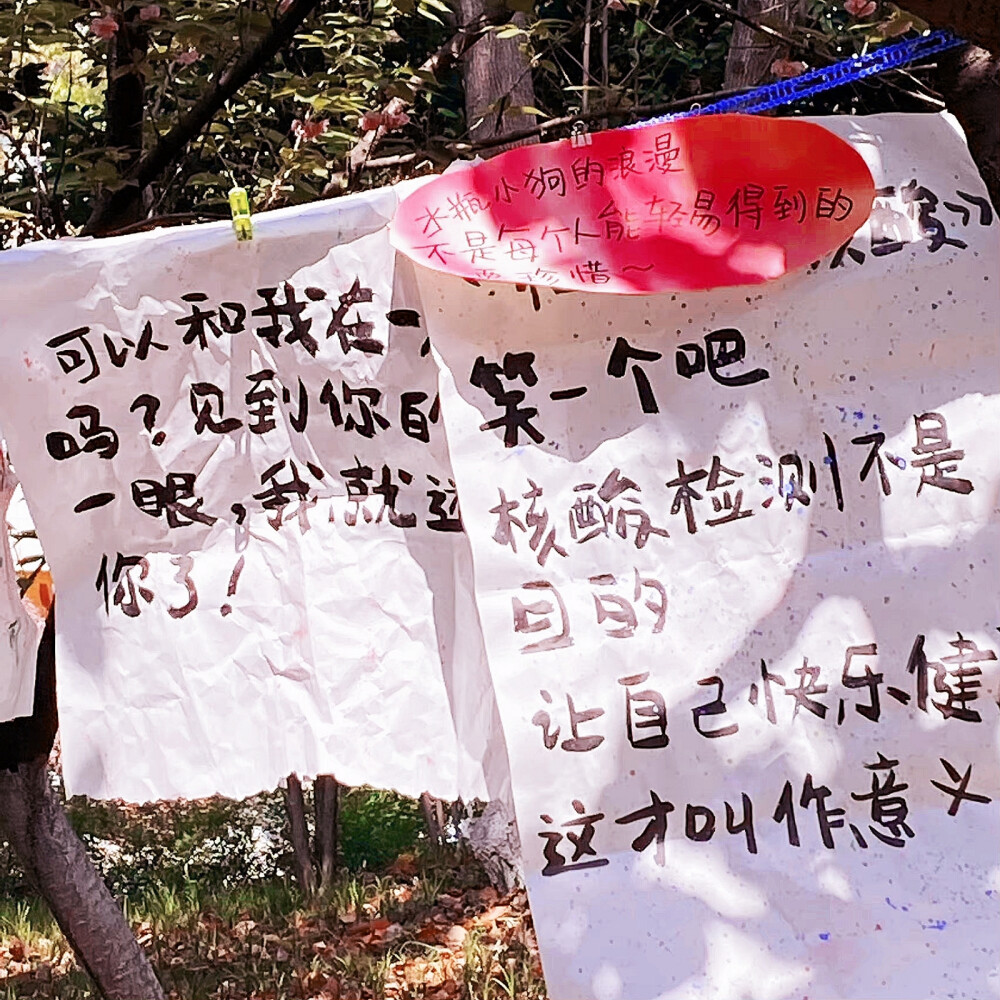 可以和我在一
吗？见到你的
一眼，我就这
你了！
水瓶小狗的浪漫
不是每个人能轻易得到的
要珍惜～
酸
笑一个吧
核酸检测不是
目的
让自己快乐健
这才叫作意义